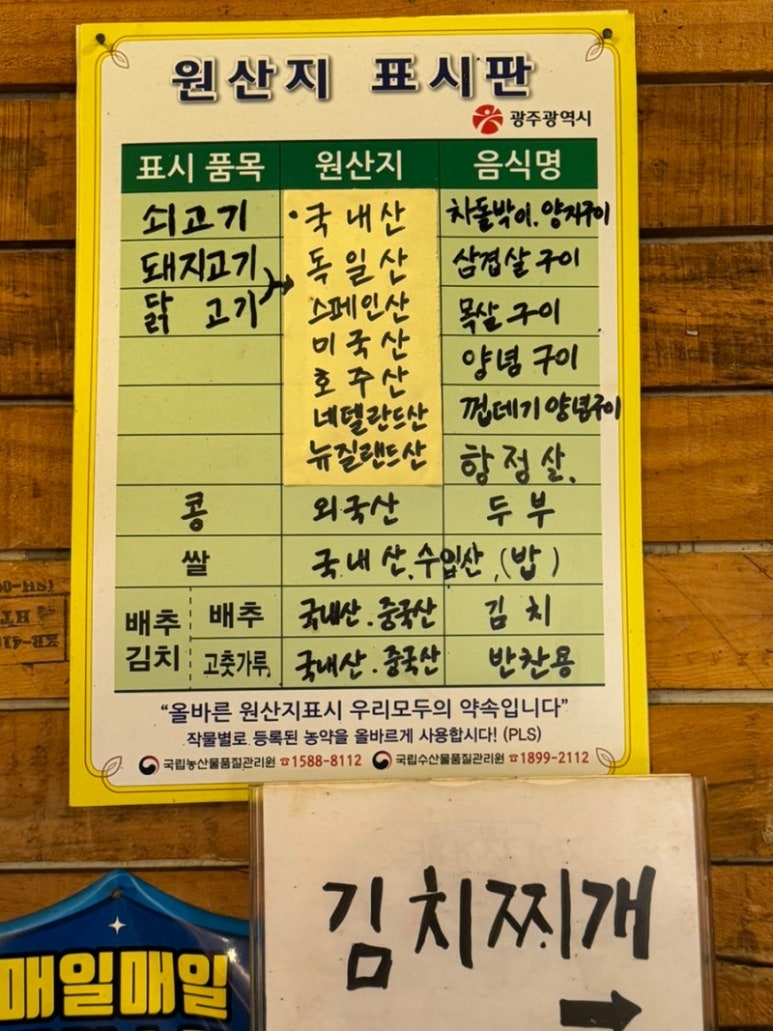 원산지 표시판
광주광역시
표시 품목 원산지 음식명
쇠고기 국내산 차돌박이. 양지구이
돼지고기 독일산 삼겹살 구이
닭 고기 스페인산 목살 구이
미국산 양념 구이
호주산
네델란드산 껍데기 양념구이
뉴질랜드산 항정살.
콩 외국산 두부
쌀 국내산.수입산 (밥)
배추 김치 배추 국내산. 중국산 김치
고춧가루 국내산. 중국산 반찬용
“올바른 원산지표시 우리모두의 약속입니다”
작물별로 등록된 농약을 올바르게 사용합시다! (PLS)
국립농산물품질관리원 ☎1588-8112 국립수산물품질관리원 ☎1899-2112
김치찌개
매일매일